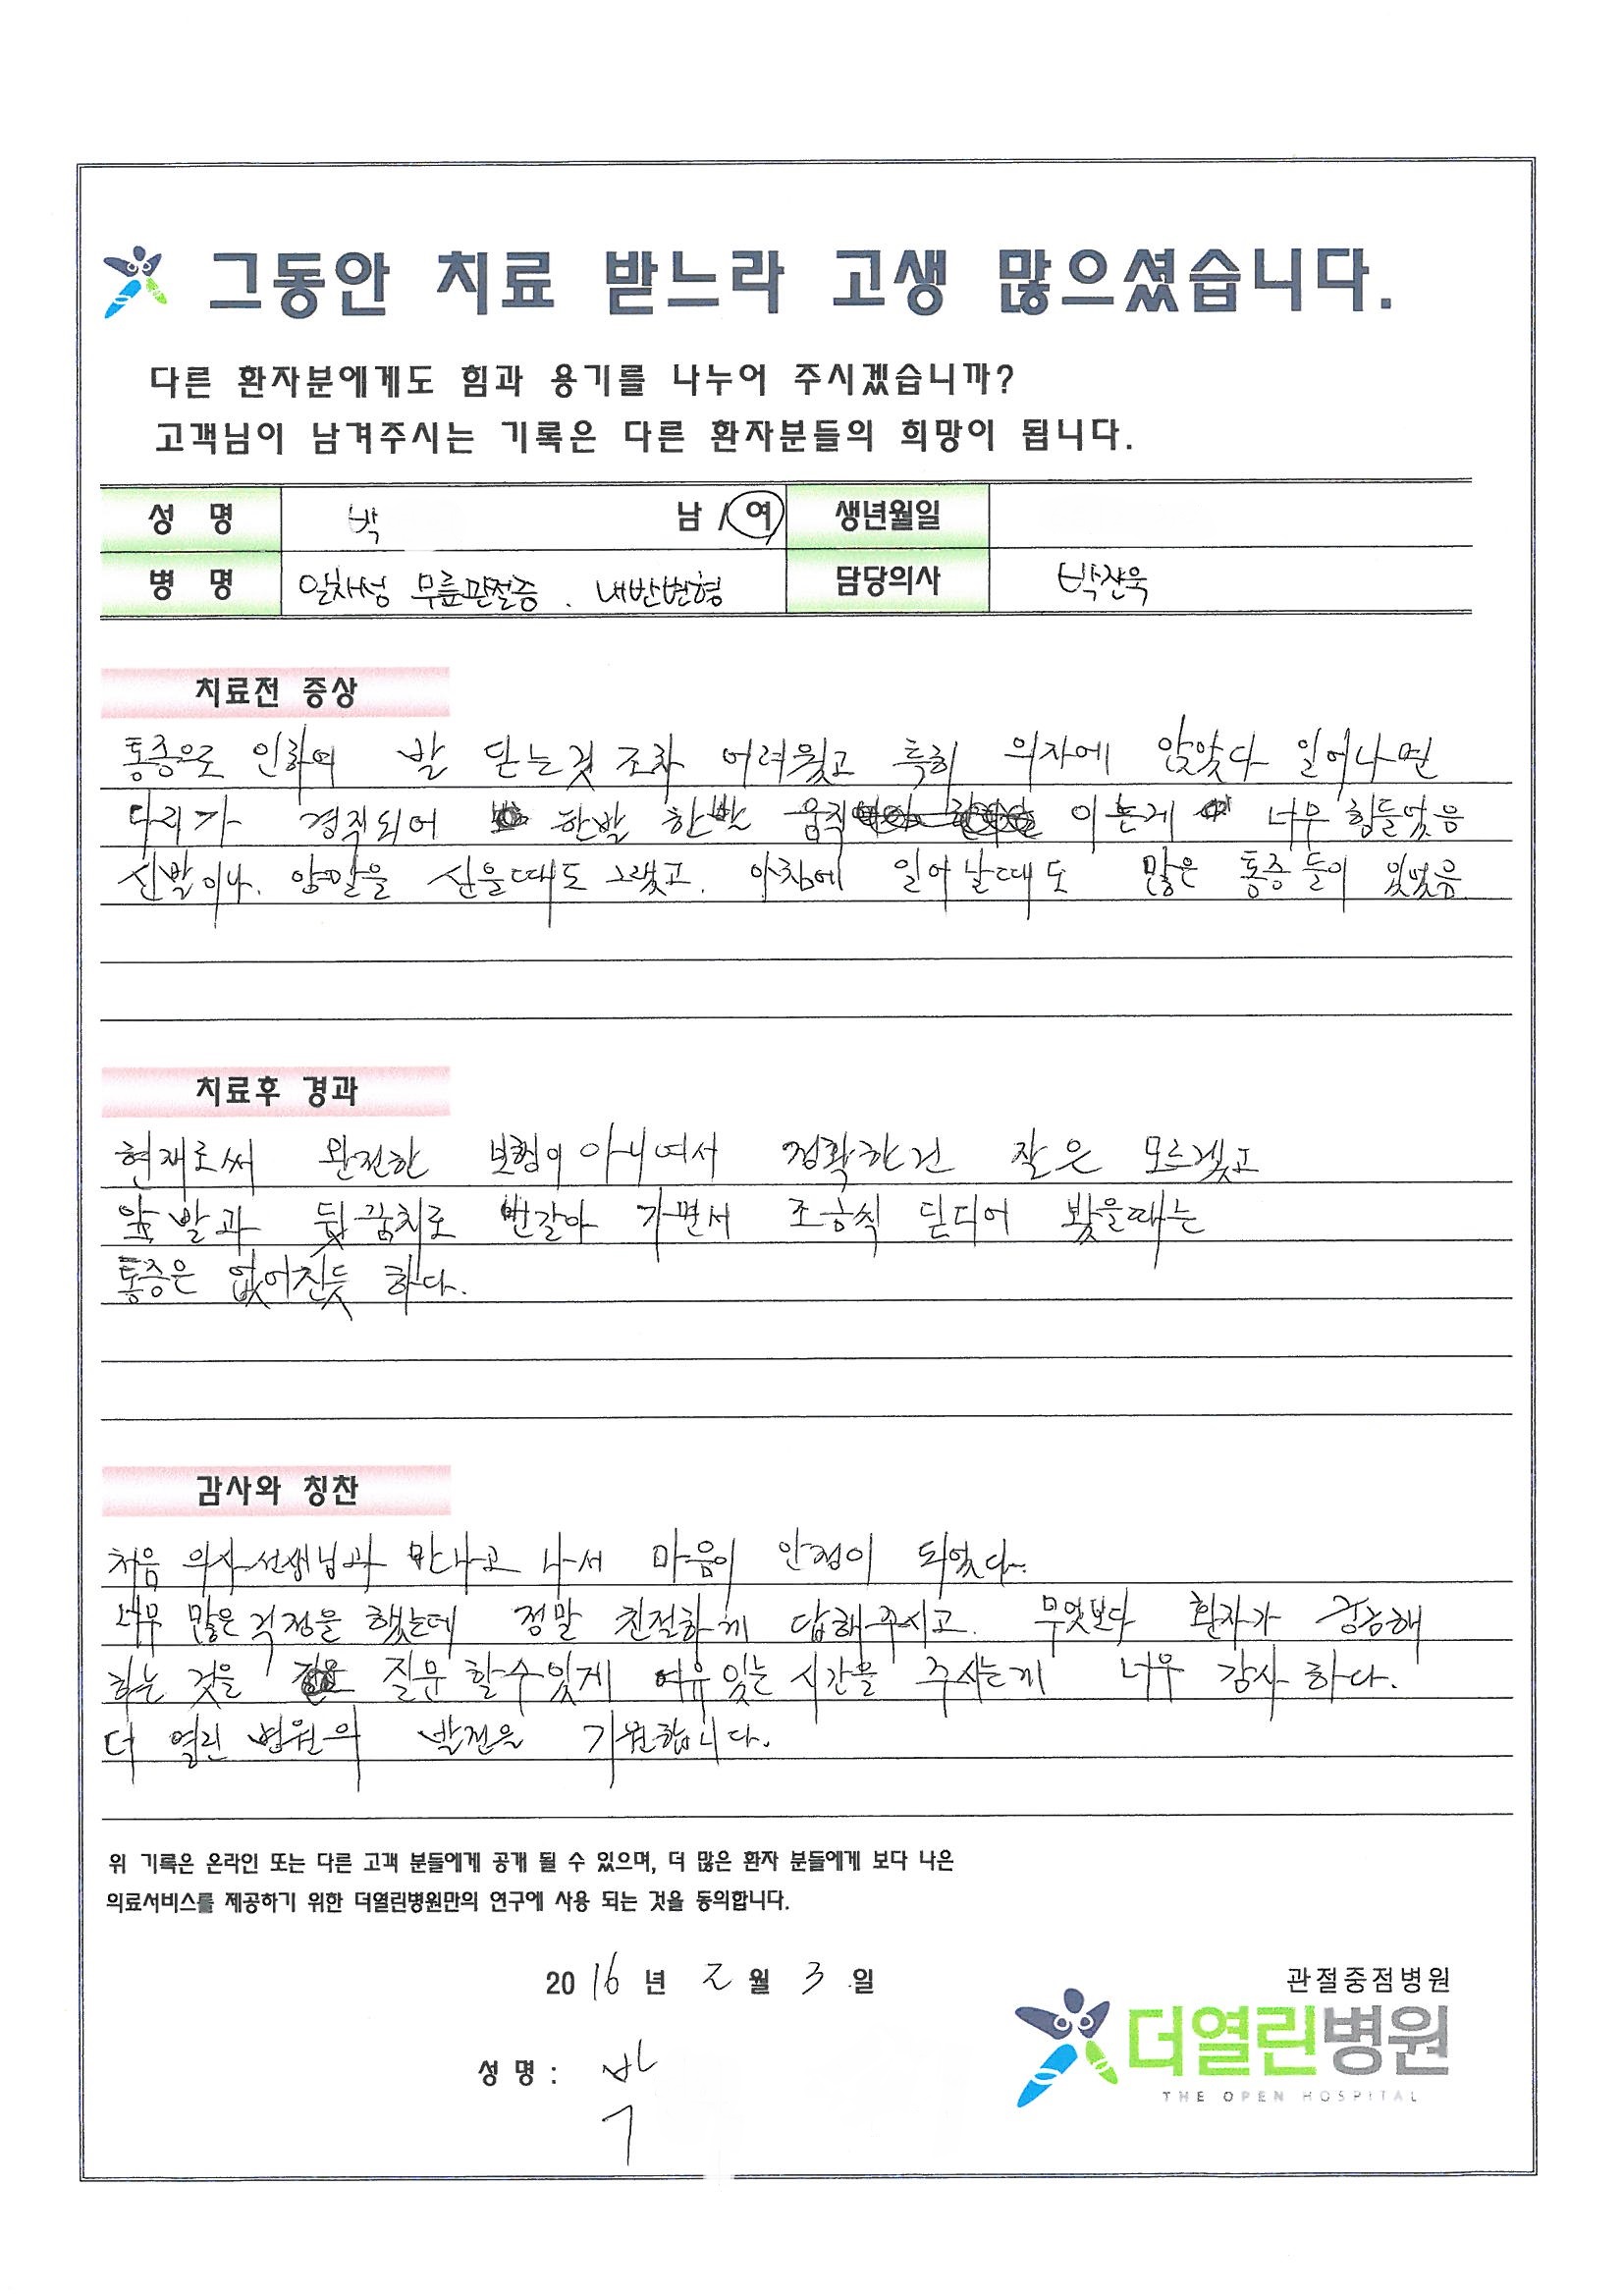 그동안 치료 받느라 고생 많으셨습니다.
다른 환자분에게도 힘과 용기를 나누어 주시겠습니까?
고객님이 남겨주시는 기록은 다른 환자분들의 희망이 됩니다.
성 명 박 남 / 여 생년월일
병 명 일차성 무릎관절증 . 내반변형 담당의사 박찬욱
치료전 증상
통증으로 인하여 발 딛는것 조차 어려웠고 특히 의자에 앉았다 일어나면
다리가 경직되어 한발 한발 움직 이는게 너무 힘들었음
신발이나. 양말을 신을때도 그랬고. 아침에 일어날때도 많은 통증들이 있었음
치료후 경과
현재로써 완전한 보행이 아니여서 정확한건 잘은 모르겠고
앞발과 뒷꿈치로 번갈아 가면서 조금씩 딛디어 봤을때는
통증은 없어진듯 하다.
감사와 칭찬
처음 의사선생님과 만나고 나서 마음이 안정이 되었다.
너무 많은 걱정을 했는데 정말 친절하게 답해주시고. 무엇보다 환자가 궁금해
하는 것을 질문 할수있게 여유있는 시간을 주시는게 너무 감사 하다.
더 열린 병원의 발전을 기원합니다.
위 기록은 온라인 또는 다른 고객 분들에게 공개 될 수 있으며, 더 많은 환자 분들에게 보다 나은
의료서비스를 제공하기 위한 더열린병원만의 연구에 사용 되는 것을 동의합니다.
2016 년 2 월 3 일
관절중점병원
더열린병원
THE OPEN HOSPITAL
성 명 : 박